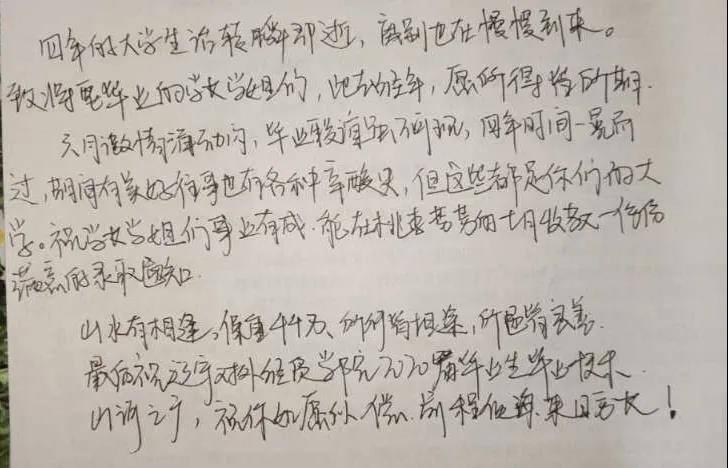 四年的大学生活转瞬即逝，离别也在慢慢到来。
致将要毕业的学长学姐们，此去经年，愿所得皆所期.
六月激情涌动的，毕业骊虽不，四年时间一晃而
过，期间有美好往事也有各种辛酸史，但这些都是你们的大
学。祝学长学姐们事业有成.能在桃李芬芳的七月收获一份份
满意的录取
山水有相逢，保重千千万、所行皆坦途，所遇皆良善.
最后祝辽宁对外经贸学院2020届毕业生毕业快乐.
山河之宁，祝你如愿以偿.前程似海.来日方长！